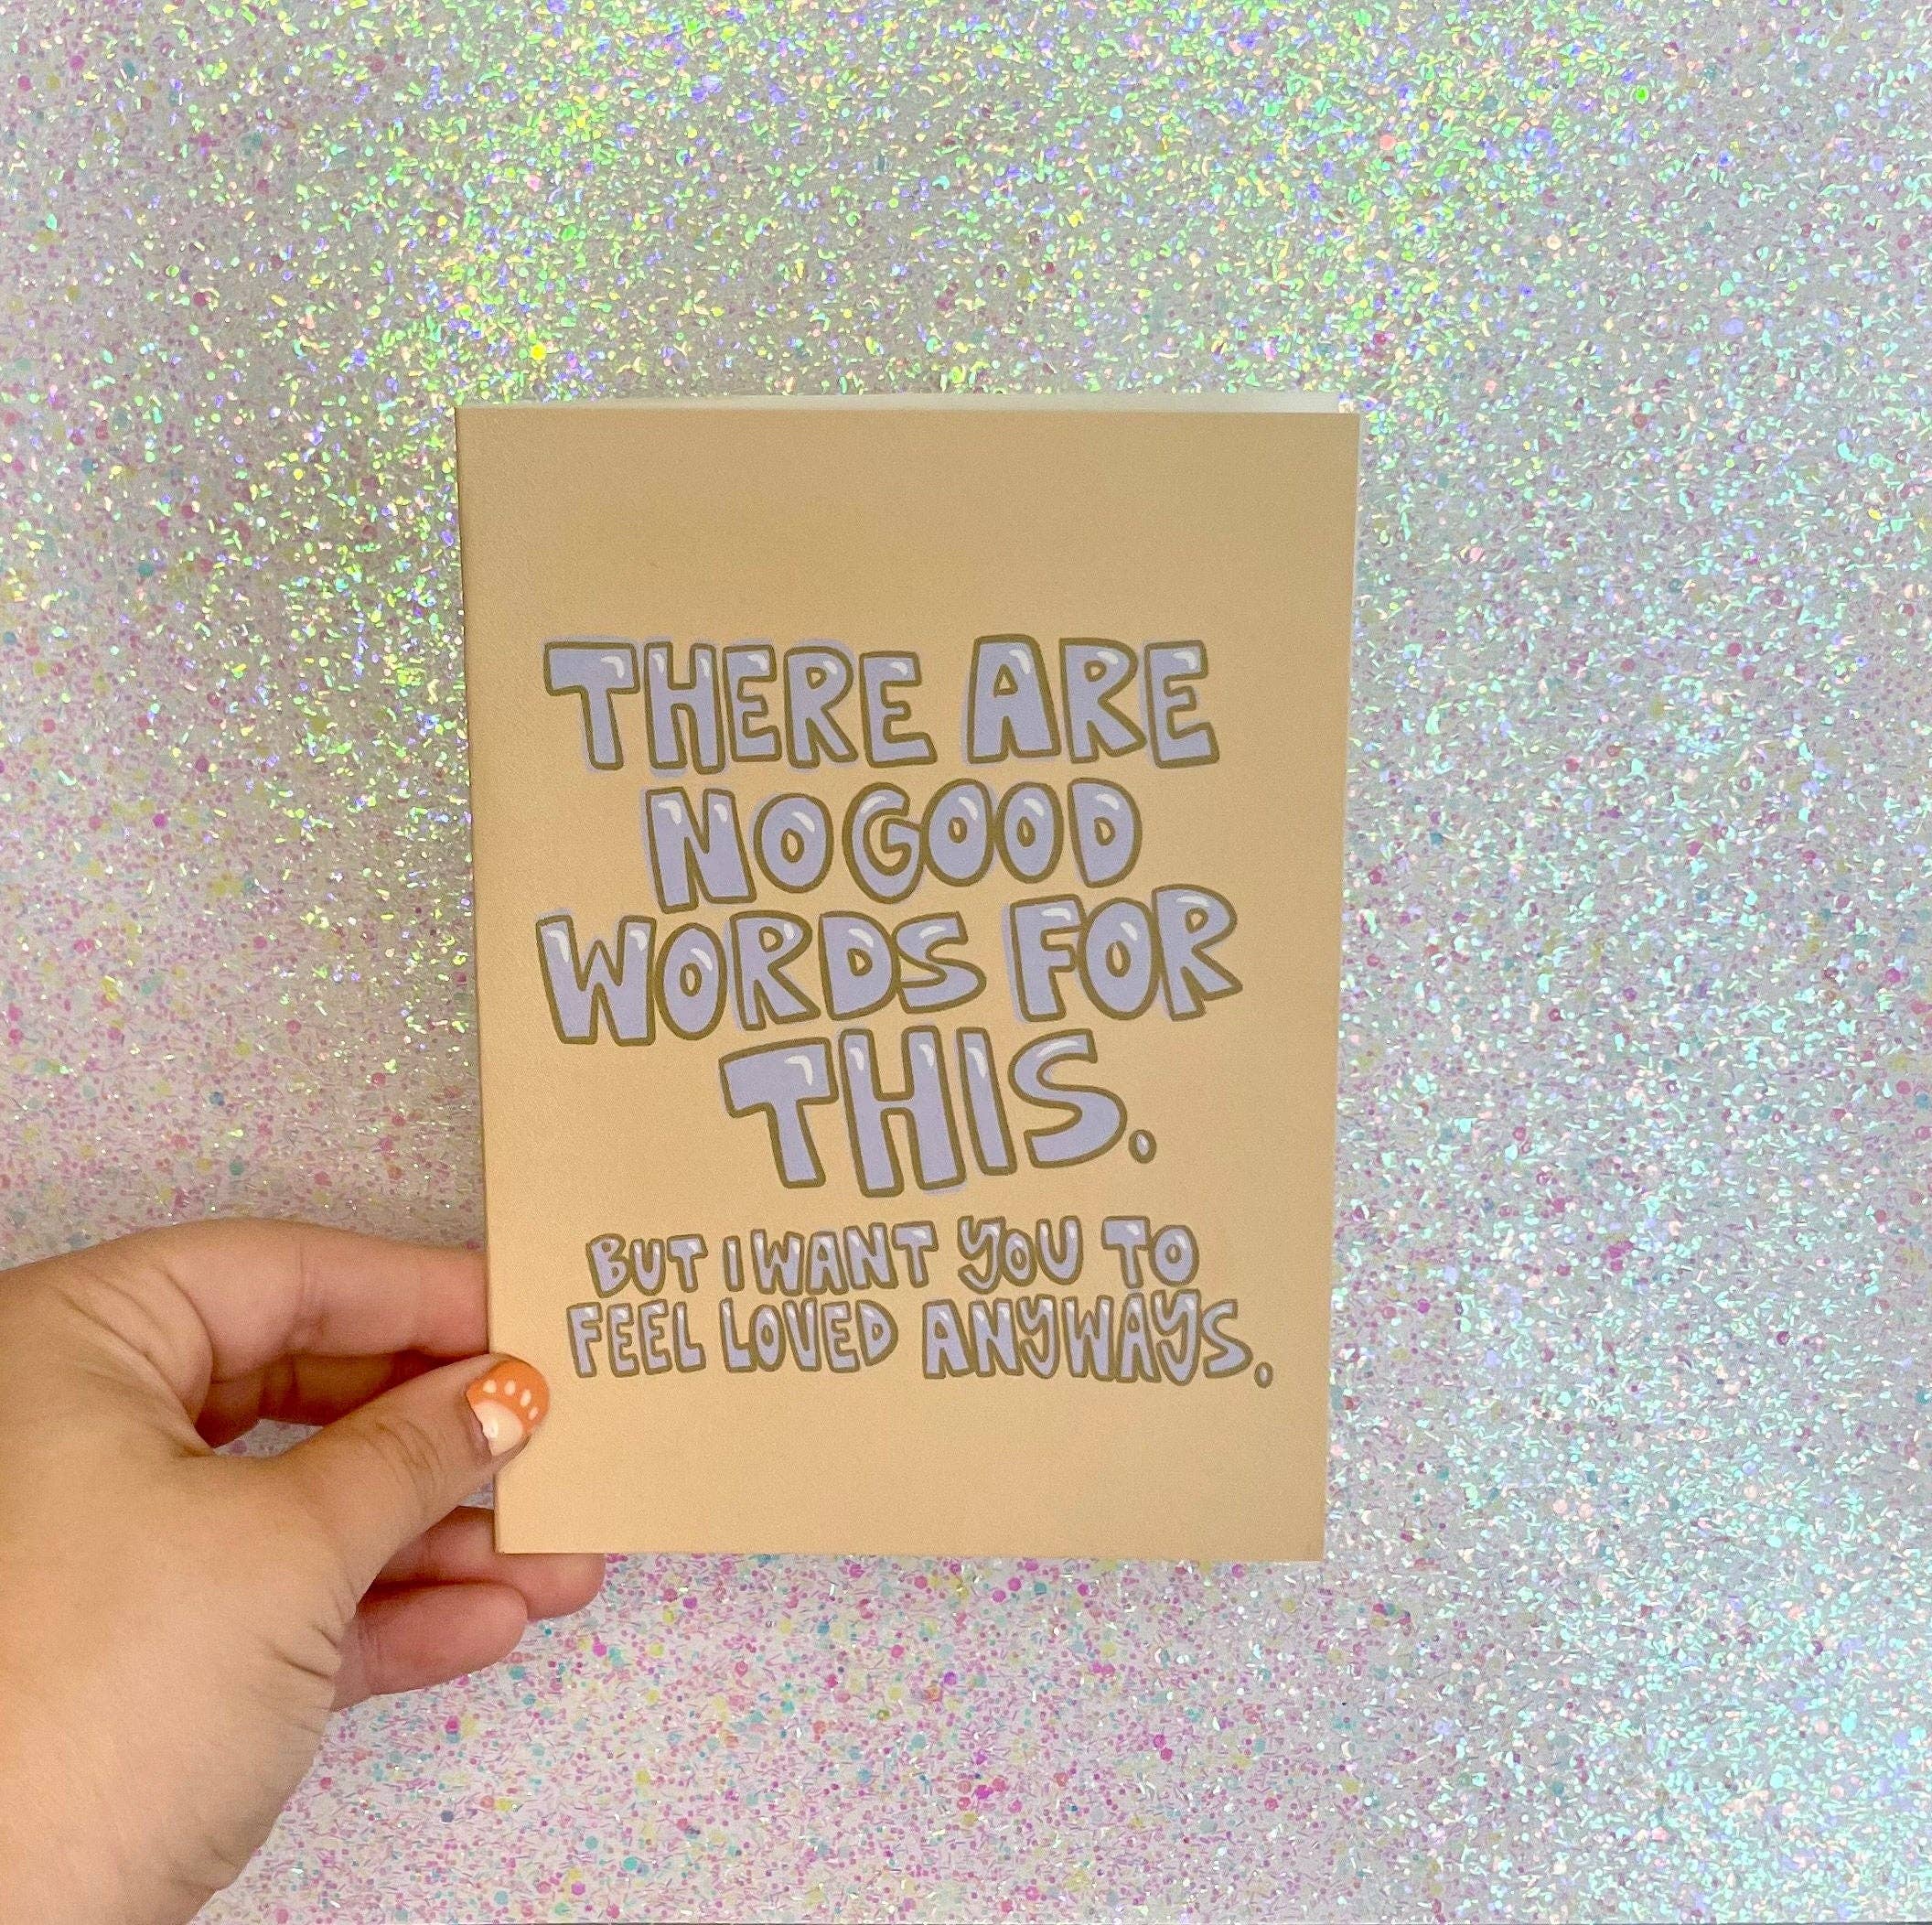 THERE ARE
NO GOOD
WORDS FOR
THIS.
BUT I WANT YOU TO
FEEL LOVED ANYWAYS.